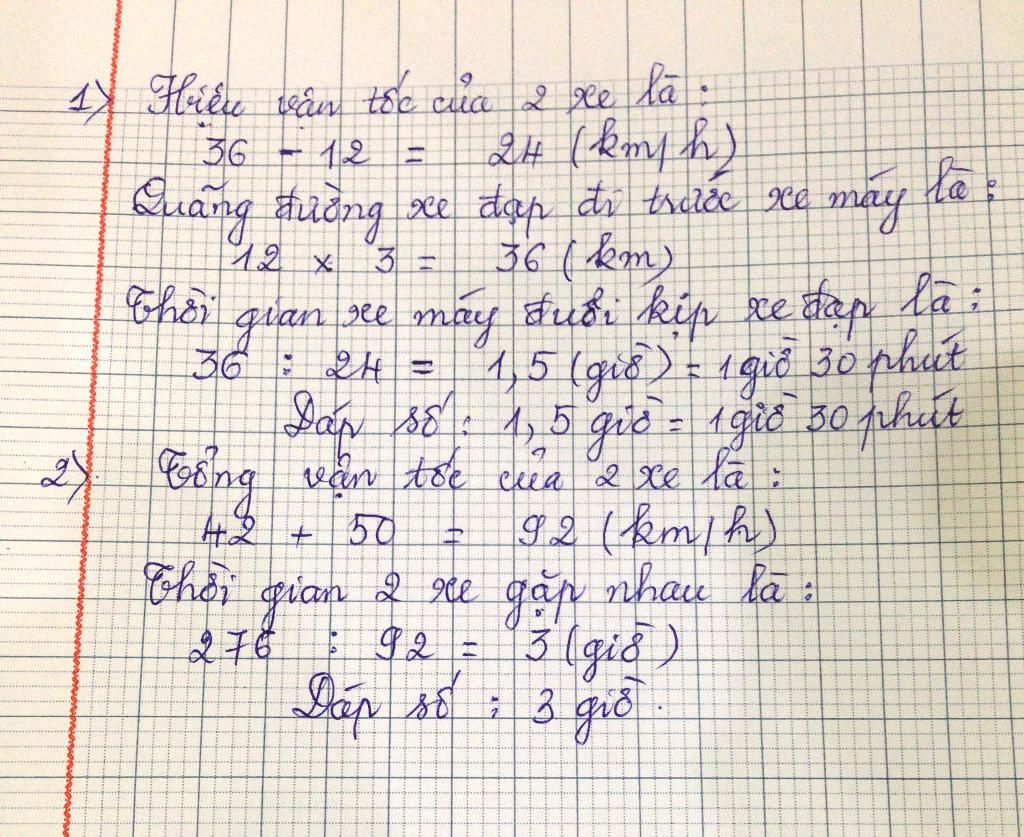 1) Hiệu vận tốc của 2 xe là :
36 - 12 = 24 (km/h)
Quãng đường xe đạp đi trước xe máy là :
12 x 3 = 36 (km)
Thời gian xe máy đuổi kịp xe đạp là :
36 : 24 = 1,5 (giờ) = 1 giờ 30 phút
Đáp số : 1,5 giờ = 1 giờ 30 phút
2) Tổng vận tốc của 2 xe là :
42 + 50 = 92 (km/h)
Thời gian 2 xe gặp nhau là :
276 : 92 = 3 (giờ)
Đáp số : 3 giờ.